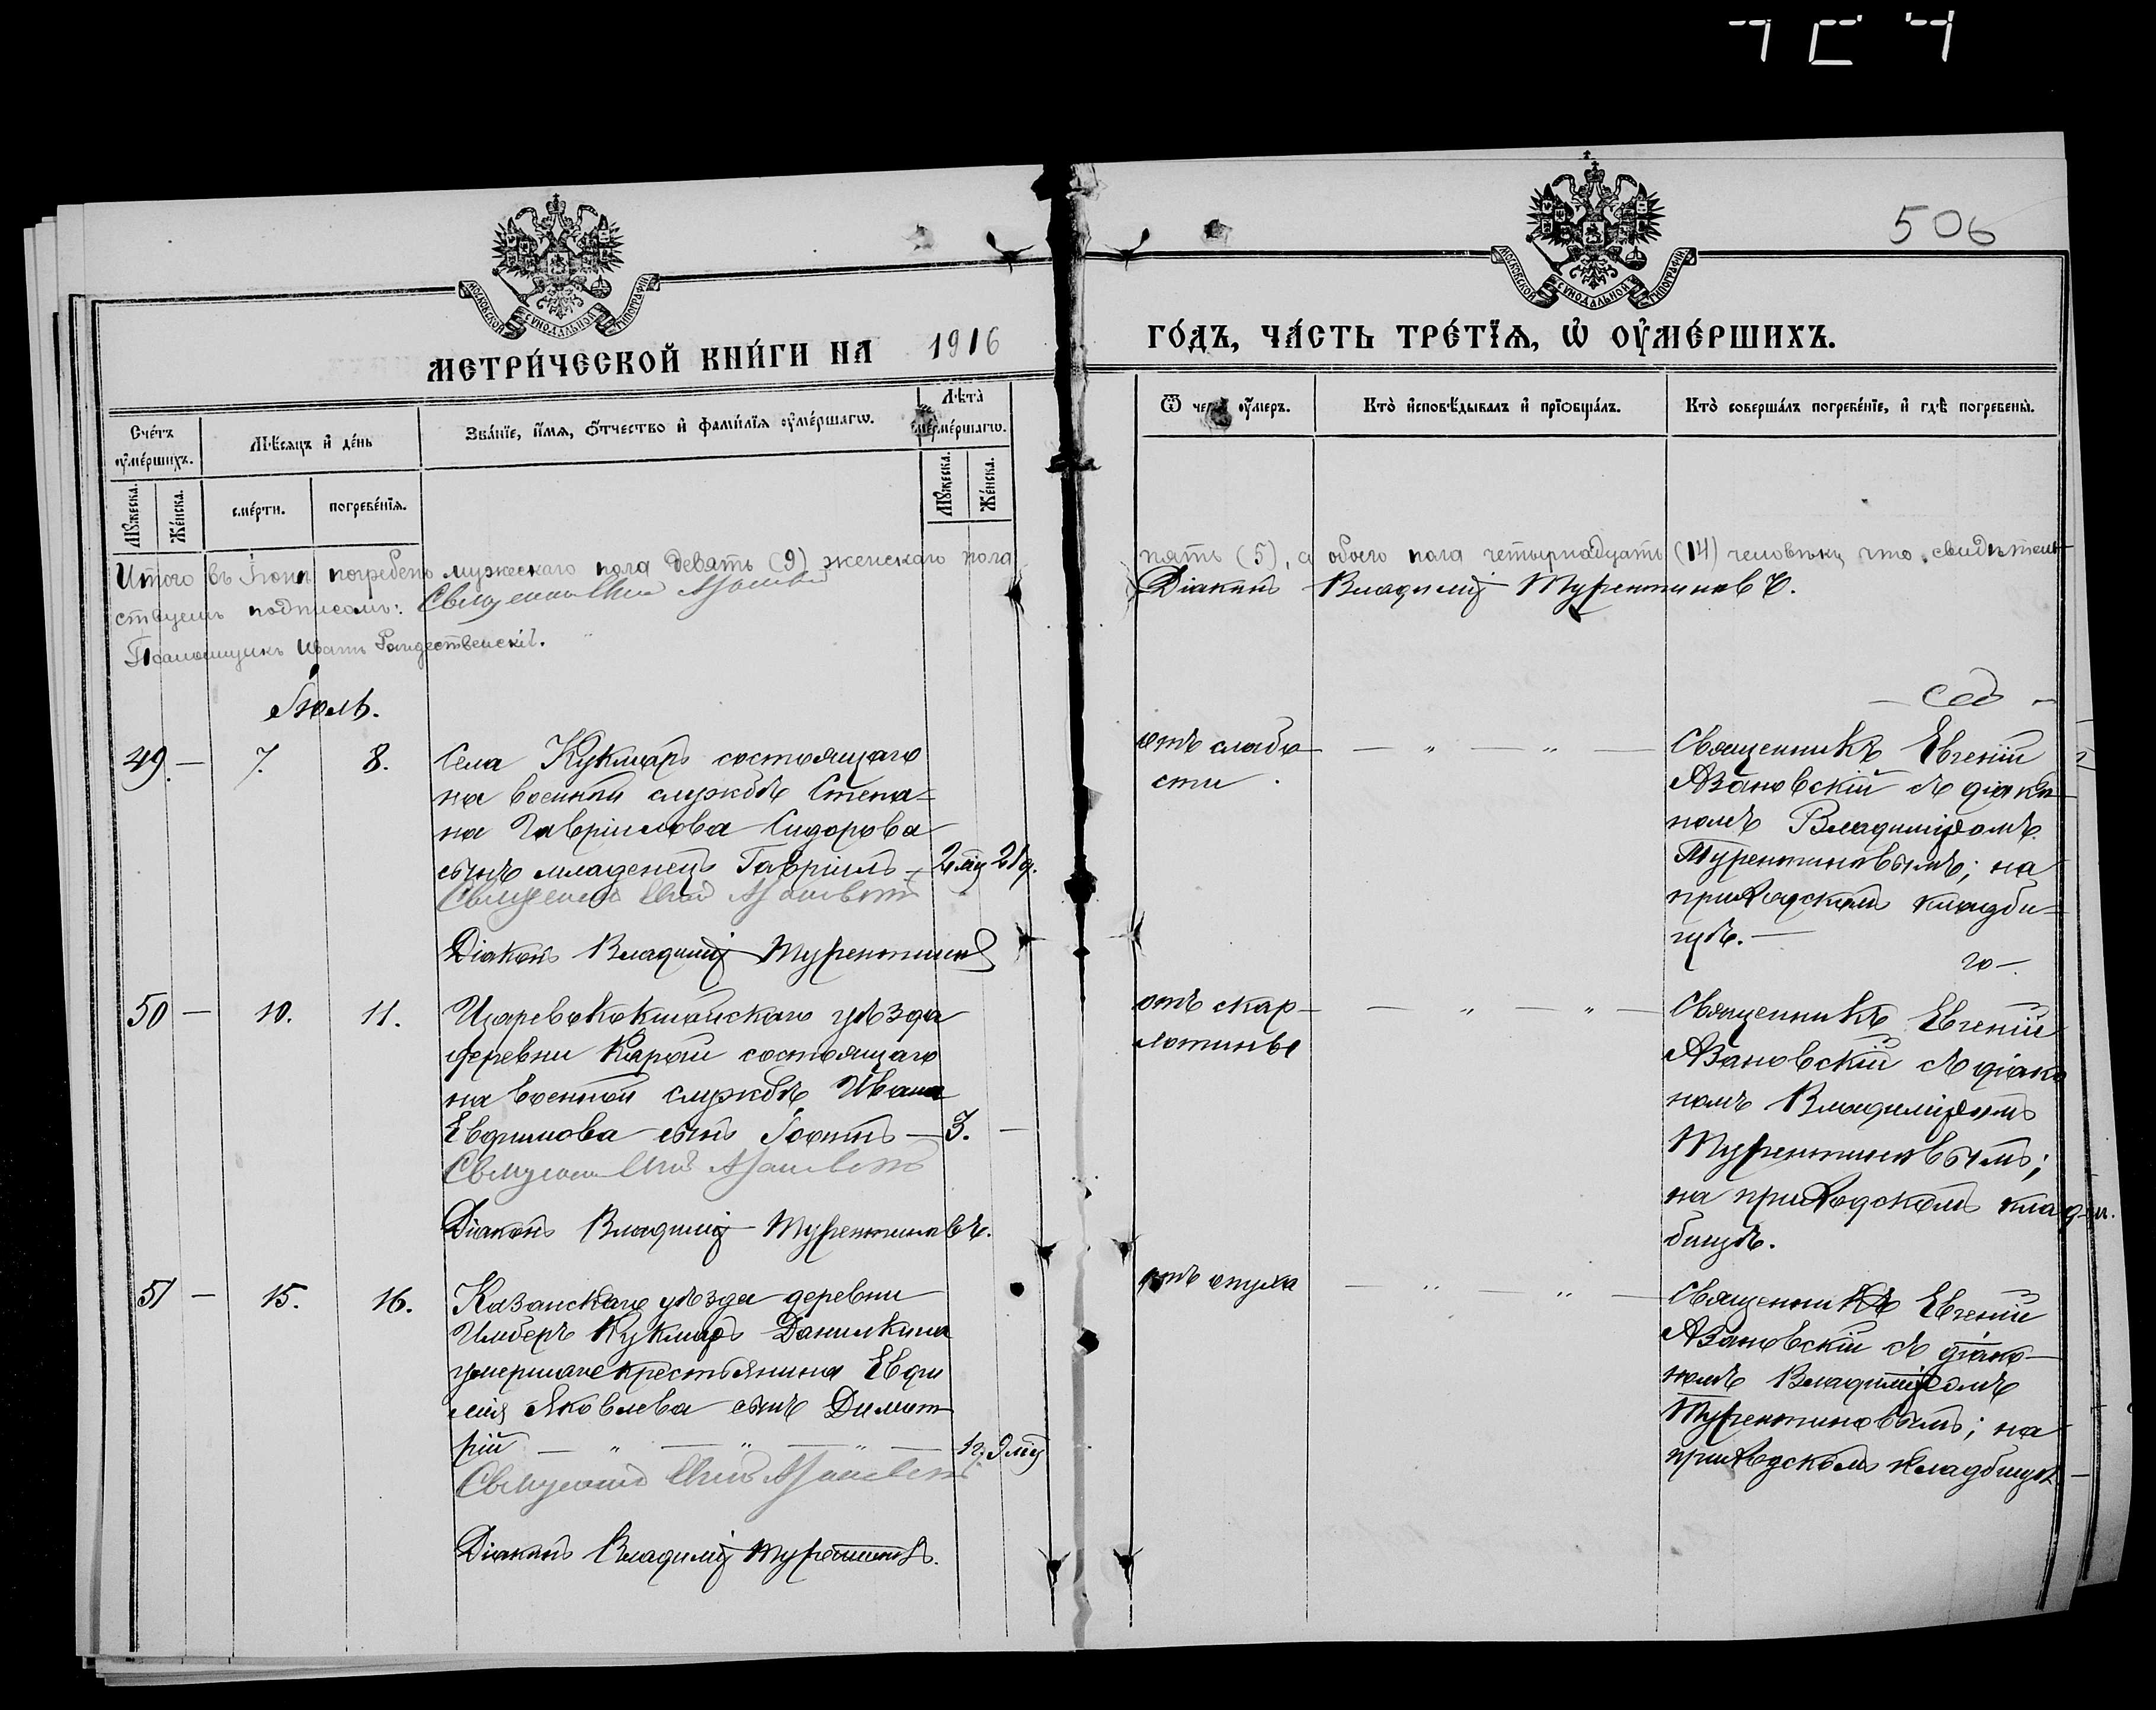 506
МОСКОВСКОЙ СѴНОДАЛЬНОЙ ТИПОГРАФІИ
МОСКОВСКОЙ СѴНОДАЛЬНОЙ ТИПОГРАФІИ
МЕТРИ́ЧЕСКОЙ КНИ́ГИ НА 1916 ГО́ДЪ, ЧА́СТЬ ТРЕ́ТЇѦ, Ѡ҆ ОУ҆МЕ́РШИХЪ.
Сче́тъ оу҆ме́ршихъ.
Мꙋ́жеска.
Же́нска.
Мѣ́сяцъ и҆ де́нь
сме́рти.
погребе́нїѧ.
Зва́нїе, и҆́мѧ, ѻ҆́тчество и҆ фами́лїѧ оу҆ме́ршагѡ.
Лѣ́та оу҆ме́ршагѡ.
Мꙋ́жеска.
Же́нска.
Ѿ чегѡ̀ оу҆́меръ.
Кто̀ и҆сповѣ́дывалъ и҆ прїѡбща́лъ.
Кто̀ соверша́лъ погребе́нїе, и҆ гдѣ̀ погребены̀.
Итого въ Іюнѣ погребено мужескаго пола девять (9) женскаго пола
пять (5), а обоего пола четырнадцать (14) человѣкъ, что свидѣтель-
ствуемъ подписомъ: Священникъ
Діаконъ Владимір Турентиновъ.
Псаломщикъ Иванъ Рождественскій.
Іюль.
49. — 7. 8.
Села Кукморъ состоящаго
на военной службѣ Степа=
на Гавріилова Сидорова
сынъ младенецъ Гавріилъ — 2 мц 21 д.
Священникъ
Діаконъ Владимір Турентинов
отъ слабо-
сти.
Священникъ Евгеній
Азановскій съ діако-
номъ Владиміромъ
Турентиновымъ; на
приходскомъ кладби=
щѣ. —
50 — 10. 11.
Царевококшайскаго уѣзда
деревни состоящаго
на военной службѣ Ивана
Ефимова сынъ Іоаннъ — 3. —
Священникъ
Діаконъ Владимір Турентиновъ.
отъ скар-
лотины
го —
Священникъ Евгеній
Азановскій съ діако
номъ Владиміромъ
Турентиновымъ;
на приходскомъ клад-
бищѣ.
51 — 15. 16.
Казанскаго уѣзда деревни
Кукморъ Данилкина
умершаго крестьянина Ефи
мія Яковлева сынъ Димит-
рій — " — " — " — 1 г. 9 мц
Священникъ
Діаконъ Владимір Турентинов.
отъ опуха
Священникъ Евгеній
Азановскій съ діако-
номъ Владиміромъ
Турентиновымъ; на
приходскомъ кладбищѣ —